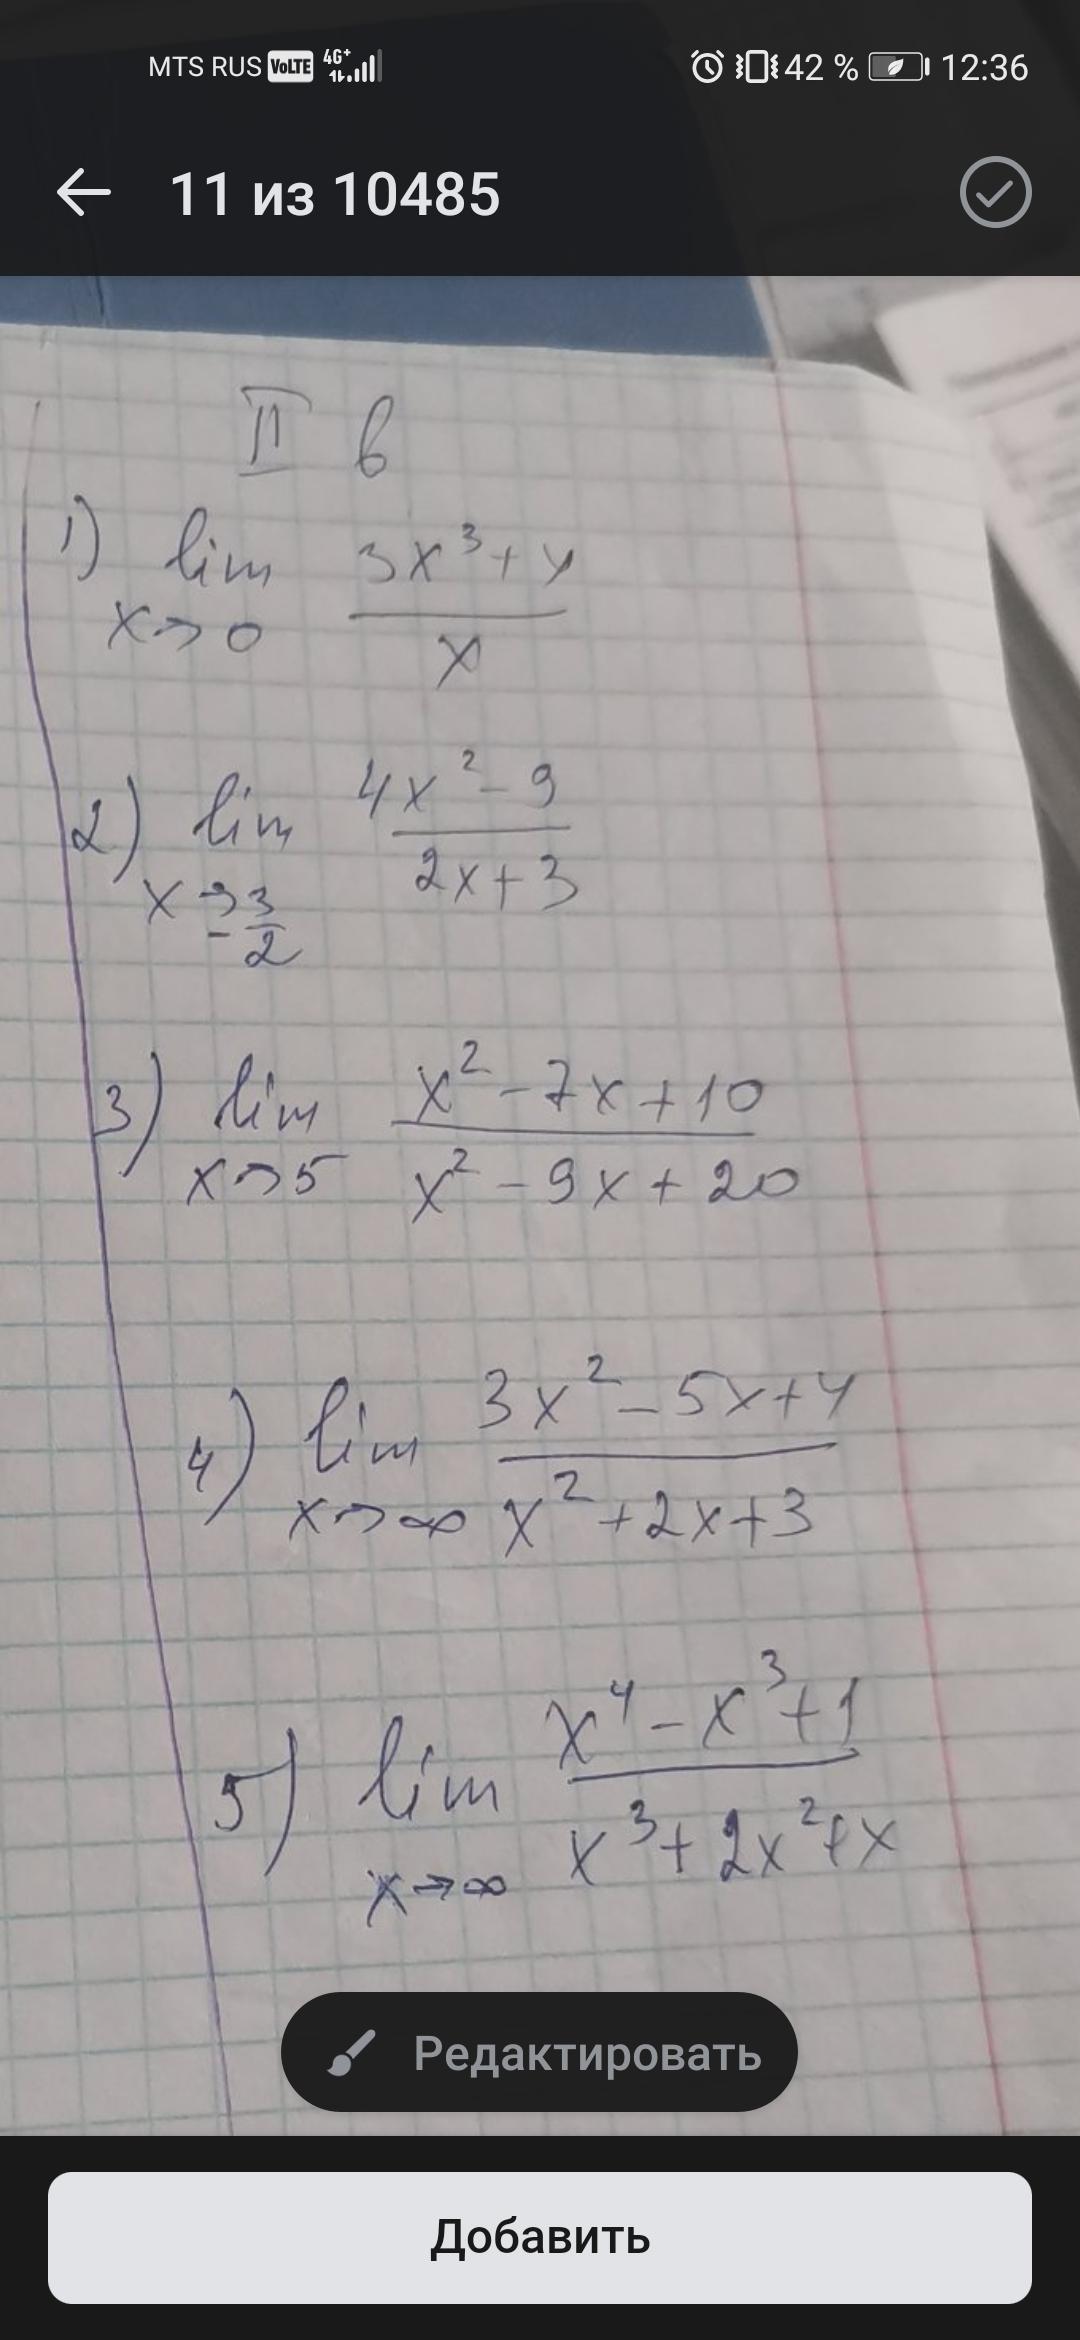 MTS RUS VoLTE 4G+ 42 % 12:36
11 из 10485
II в
1) lim 3x³+x
x→0 x
2) lim 4x²-9
x→-3/2 2x+3
3) lim x²-7x+10
x→5 x²-9x+20
4) lim 3x²-5x+4
x→∞ x²+2x+3
5) lim x⁴-x³+1
x→∞ x³+2x²+x
Редактировать
Добавить